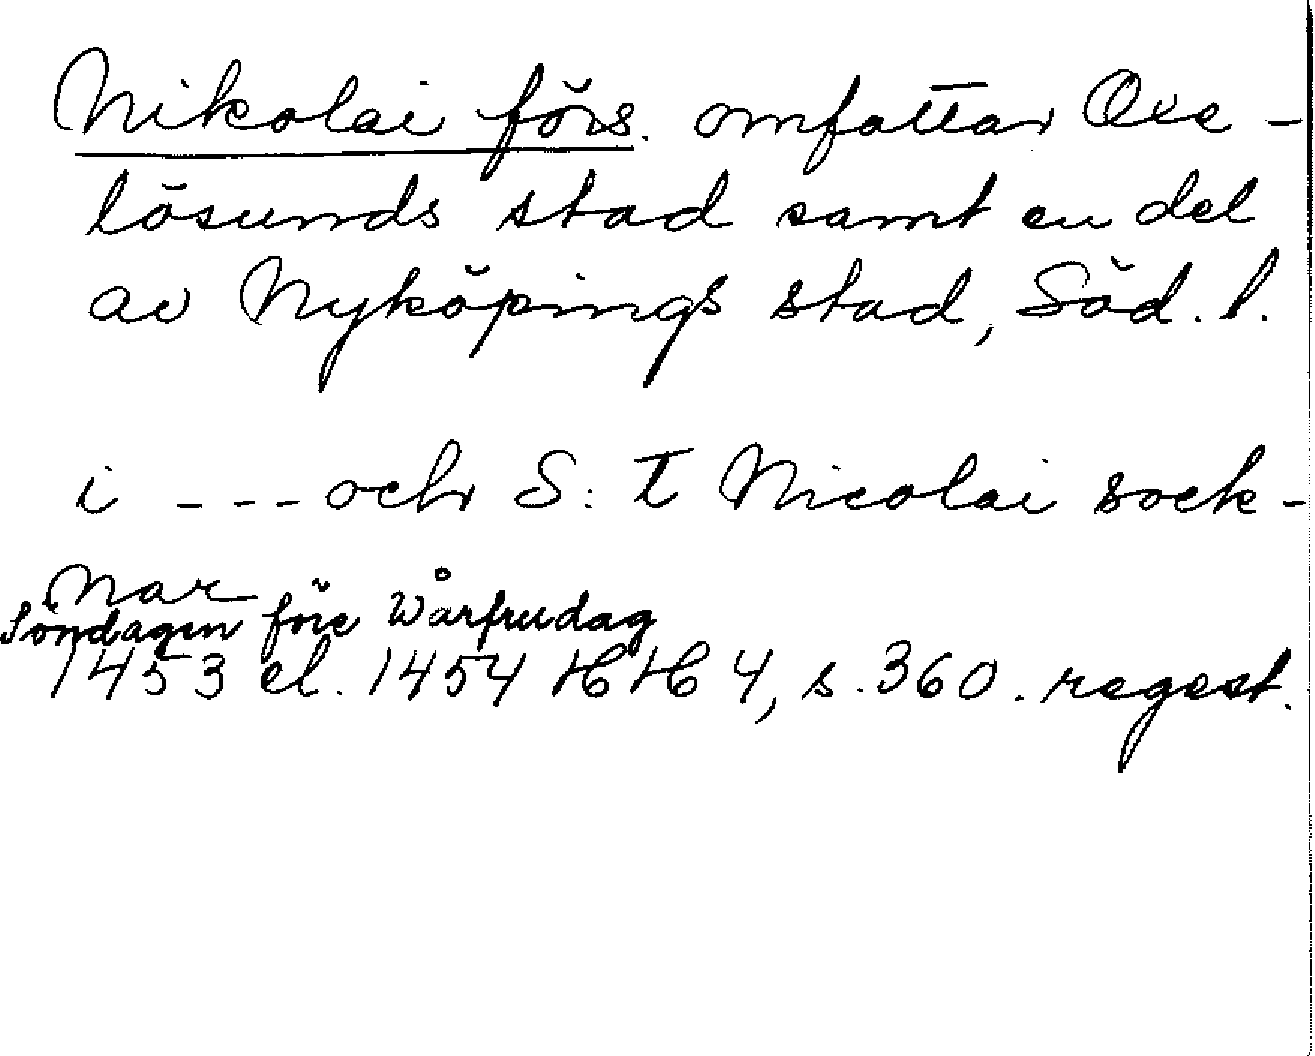 Nikolai förs. omfattar Oxe-
lösunds stad samt en del
av Nyköpings stad, Söd. l.
i --- och S:t Nicolai sock-
nar
Söndagen före Wårfrudag
1453 el. 1454 HH 4, s. 360. regest.